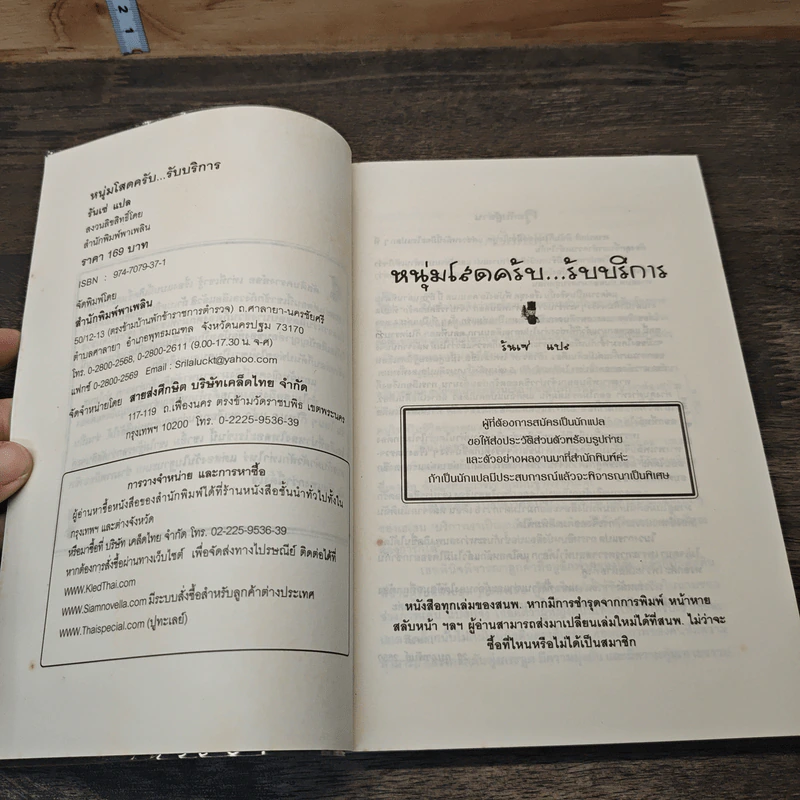 2
1
หนุ่มโสดครับ...รับบริการ
รันเซ่ แปล
สงวนลิขสิทธิ์โดย
สำนักพิมพ์พาเพลิน
ราคา 169 บาท
ISBN : 974-7079-37-1
จัดพิมพ์โดย
สำนักพิมพ์พาเพลิน
50/12-13 (ตรงข้ามบ้านพักข้าราชการตำรวจ) ถ.ศาลายา-นครชัยศรี
ตำบลศาลายา อำเภอพุทธมณฑล จังหวัดนครปฐม 73170
โทร. 0-2800-2568, 0-2800-2611 (9.00-17.30 น. จ-ศ)
แฟกซ์ 0-2800-2569 Email : Srilaluckt@yahoo.com
จัดจำหน่ายโดย สายส่งศึกษิต บริษัทเคล็ดไทย จำกัด
117-119 ถ.เฟื่องนคร ตรงข้ามวัดราชบพิธ เขตพระนคร
กรุงเทพฯ 10200 โทร. 0-2225-9536-39
การวางจำหน่าย และการหาซื้อ
ผู้อ่านหาซื้อหนังสือของสำนักพิมพ์ได้ที่ร้านหนังสือชั้นนำทั่วไปทั้งใน
กรุงเทพฯ และต่างจังหวัด
หรือมาซื้อที่ บริษัท เคล็ดไทย จำกัด โทร. 02-225-9536-39
หากต้องการสั่งซื้อผ่านทางเว็บไซต์ เพื่อจัดส่งทางไปรษณีย์ ติดต่อได้ที่
www.KledThai.com
www.Siamnovella.com มีระบบสั่งซื้อสำหรับลูกค้าต่างประเทศ
www.Thaispecial.com (ปูทะเลย์)
หนุ่มโสดครับ...รับบริการ
รันเซ่ แปล
ผู้ที่ต้องการสมัครเป็นนักแปล
ขอให้ส่งประวัติส่วนตัวพร้อมรูปถ่าย
และตัวอย่างผลงานมาที่สำนักพิมพ์ค่ะ
ถ้าเป็นนักแปลมีประสบการณ์แล้วจะพิจารณาเป็นพิเศษ
หนังสือทุกเล่มของสนพ. หากมีการชำรุดจากการพิมพ์ หน้าหาย
สลับหน้า ฯลฯ ผู้อ่านสามารถส่งมาเปลี่ยนเล่มใหม่ได้ที่สนพ. ไม่ว่าจะ
ซื้อที่ไหนหรือไม่ได้เป็นสมาชิก